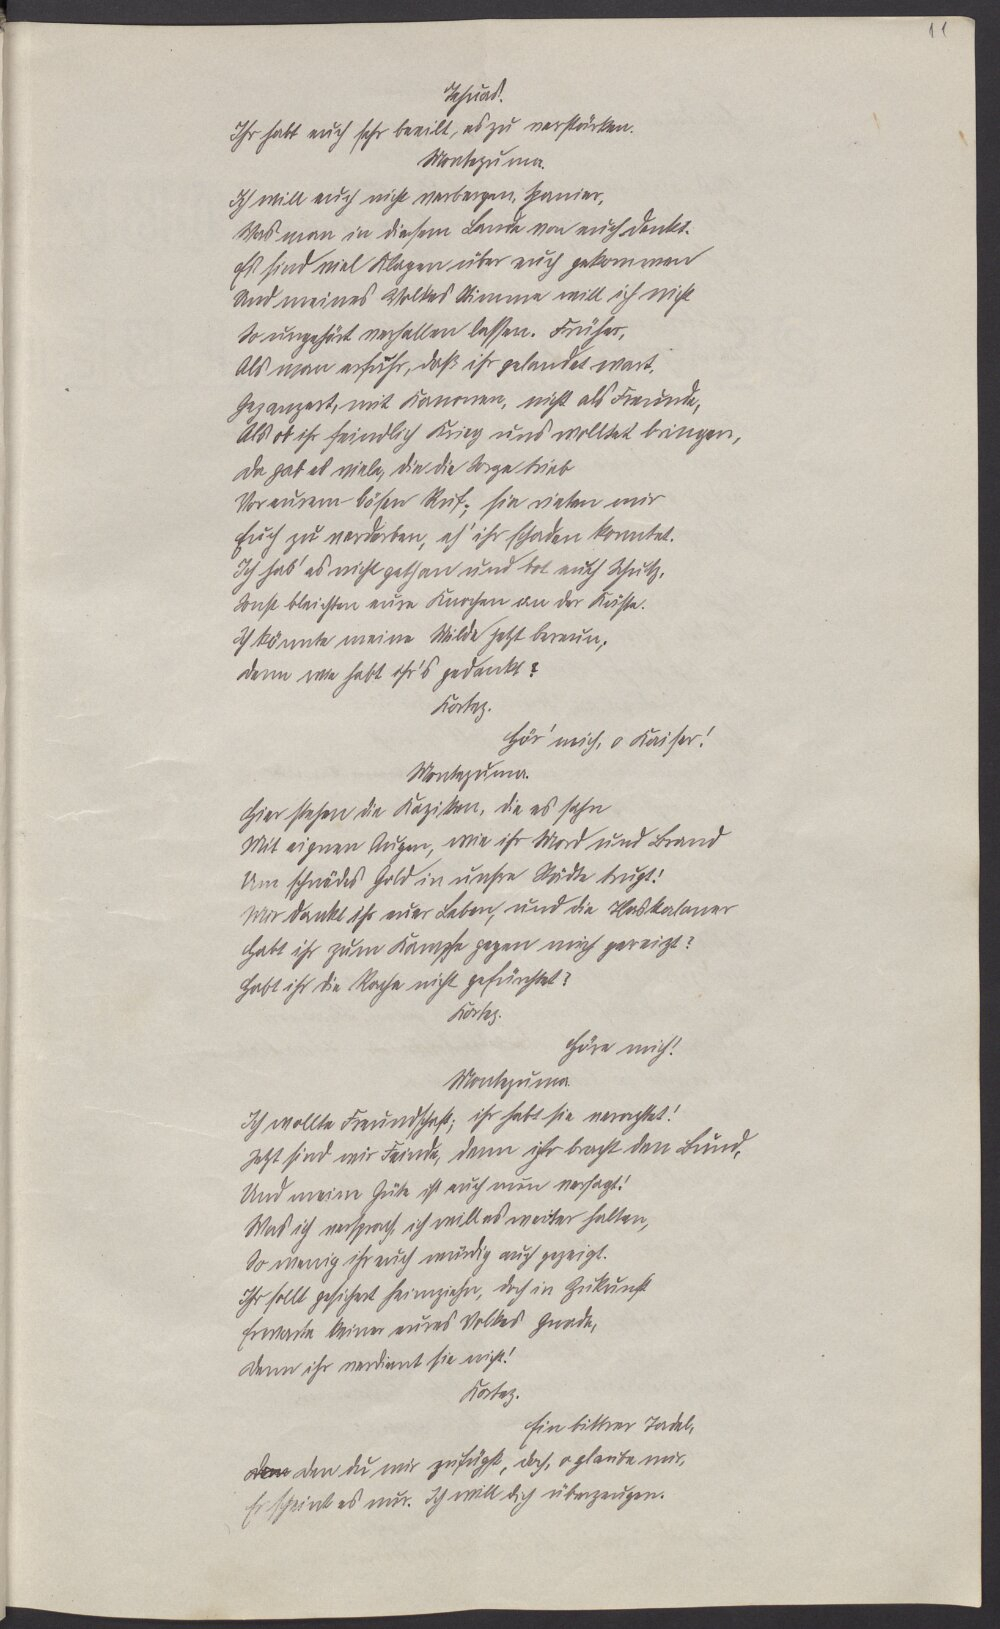 11
Ihr habt euch sehr beeilt, es zu verstärken.
Montezuma.
Ich will euch nicht verbergen, Spanier,
Was man in diesem Lande von euch denkt.
Es sind viel Klagen über euch gekommen
Und meines Volkes Stimme will ich nicht
So ungehört verhallen lassen. Früher,
Als man erfuhr, daß ihr gelandet wart,
Gepanzert, mit Kanonen, nicht als Freunde,
Als ob ihr feindlich Krieg uns wolltet bringen,
Da gab es viele, die die Sorge trieb
Vor eurem bösen Ruf; sie rieten mir
Euch zu verderben, eh' ihr schaden konntet.
Ich hab' es nicht gethan und bot euch Schutz,
Sonst bleichten eure Knochen an der Küste.
Ich könnte meine Milde jetzt bereun,
Denn wie habt ihr's gedankt?
Kortez.
Hör' mich, o Kaiser!
Montezuma.
Hier stehen die Kaziken, die es sahn
Mit eignen Augen, wie ihr Mord und Brand
Um schnödes Gold in unsre Städte trugt!
Mir dankt ihr euer Leben, und die Tlaskalaner
Habt ihr zum Kampfe gegen mich gereizt?
Habt ihr die Rache nicht gefürchtet?
Kortez.
Höre mich!
Montezuma.
Ich wollte Freundschaft; ihr habt sie verachtet!
Jetzt sind wir Feinde, denn ihr bracht den Bund,
Und meine Güte ist euch nun versagt!
Was ich versprach, ich will es weiter halten,
So wenig ihr euch würdig auch gezeigt.
Ihr sollt gesichert heimziehn, doch in Zukunft
Erwarte keiner eures Volkes Gnade,
Denn ihr verdient sie nicht!
Kortez.
Ein bittrer Tadel,
den du mir zufügst, doch, o glaube mir,
Er scheint es nur. Ich will dich überzeugen.